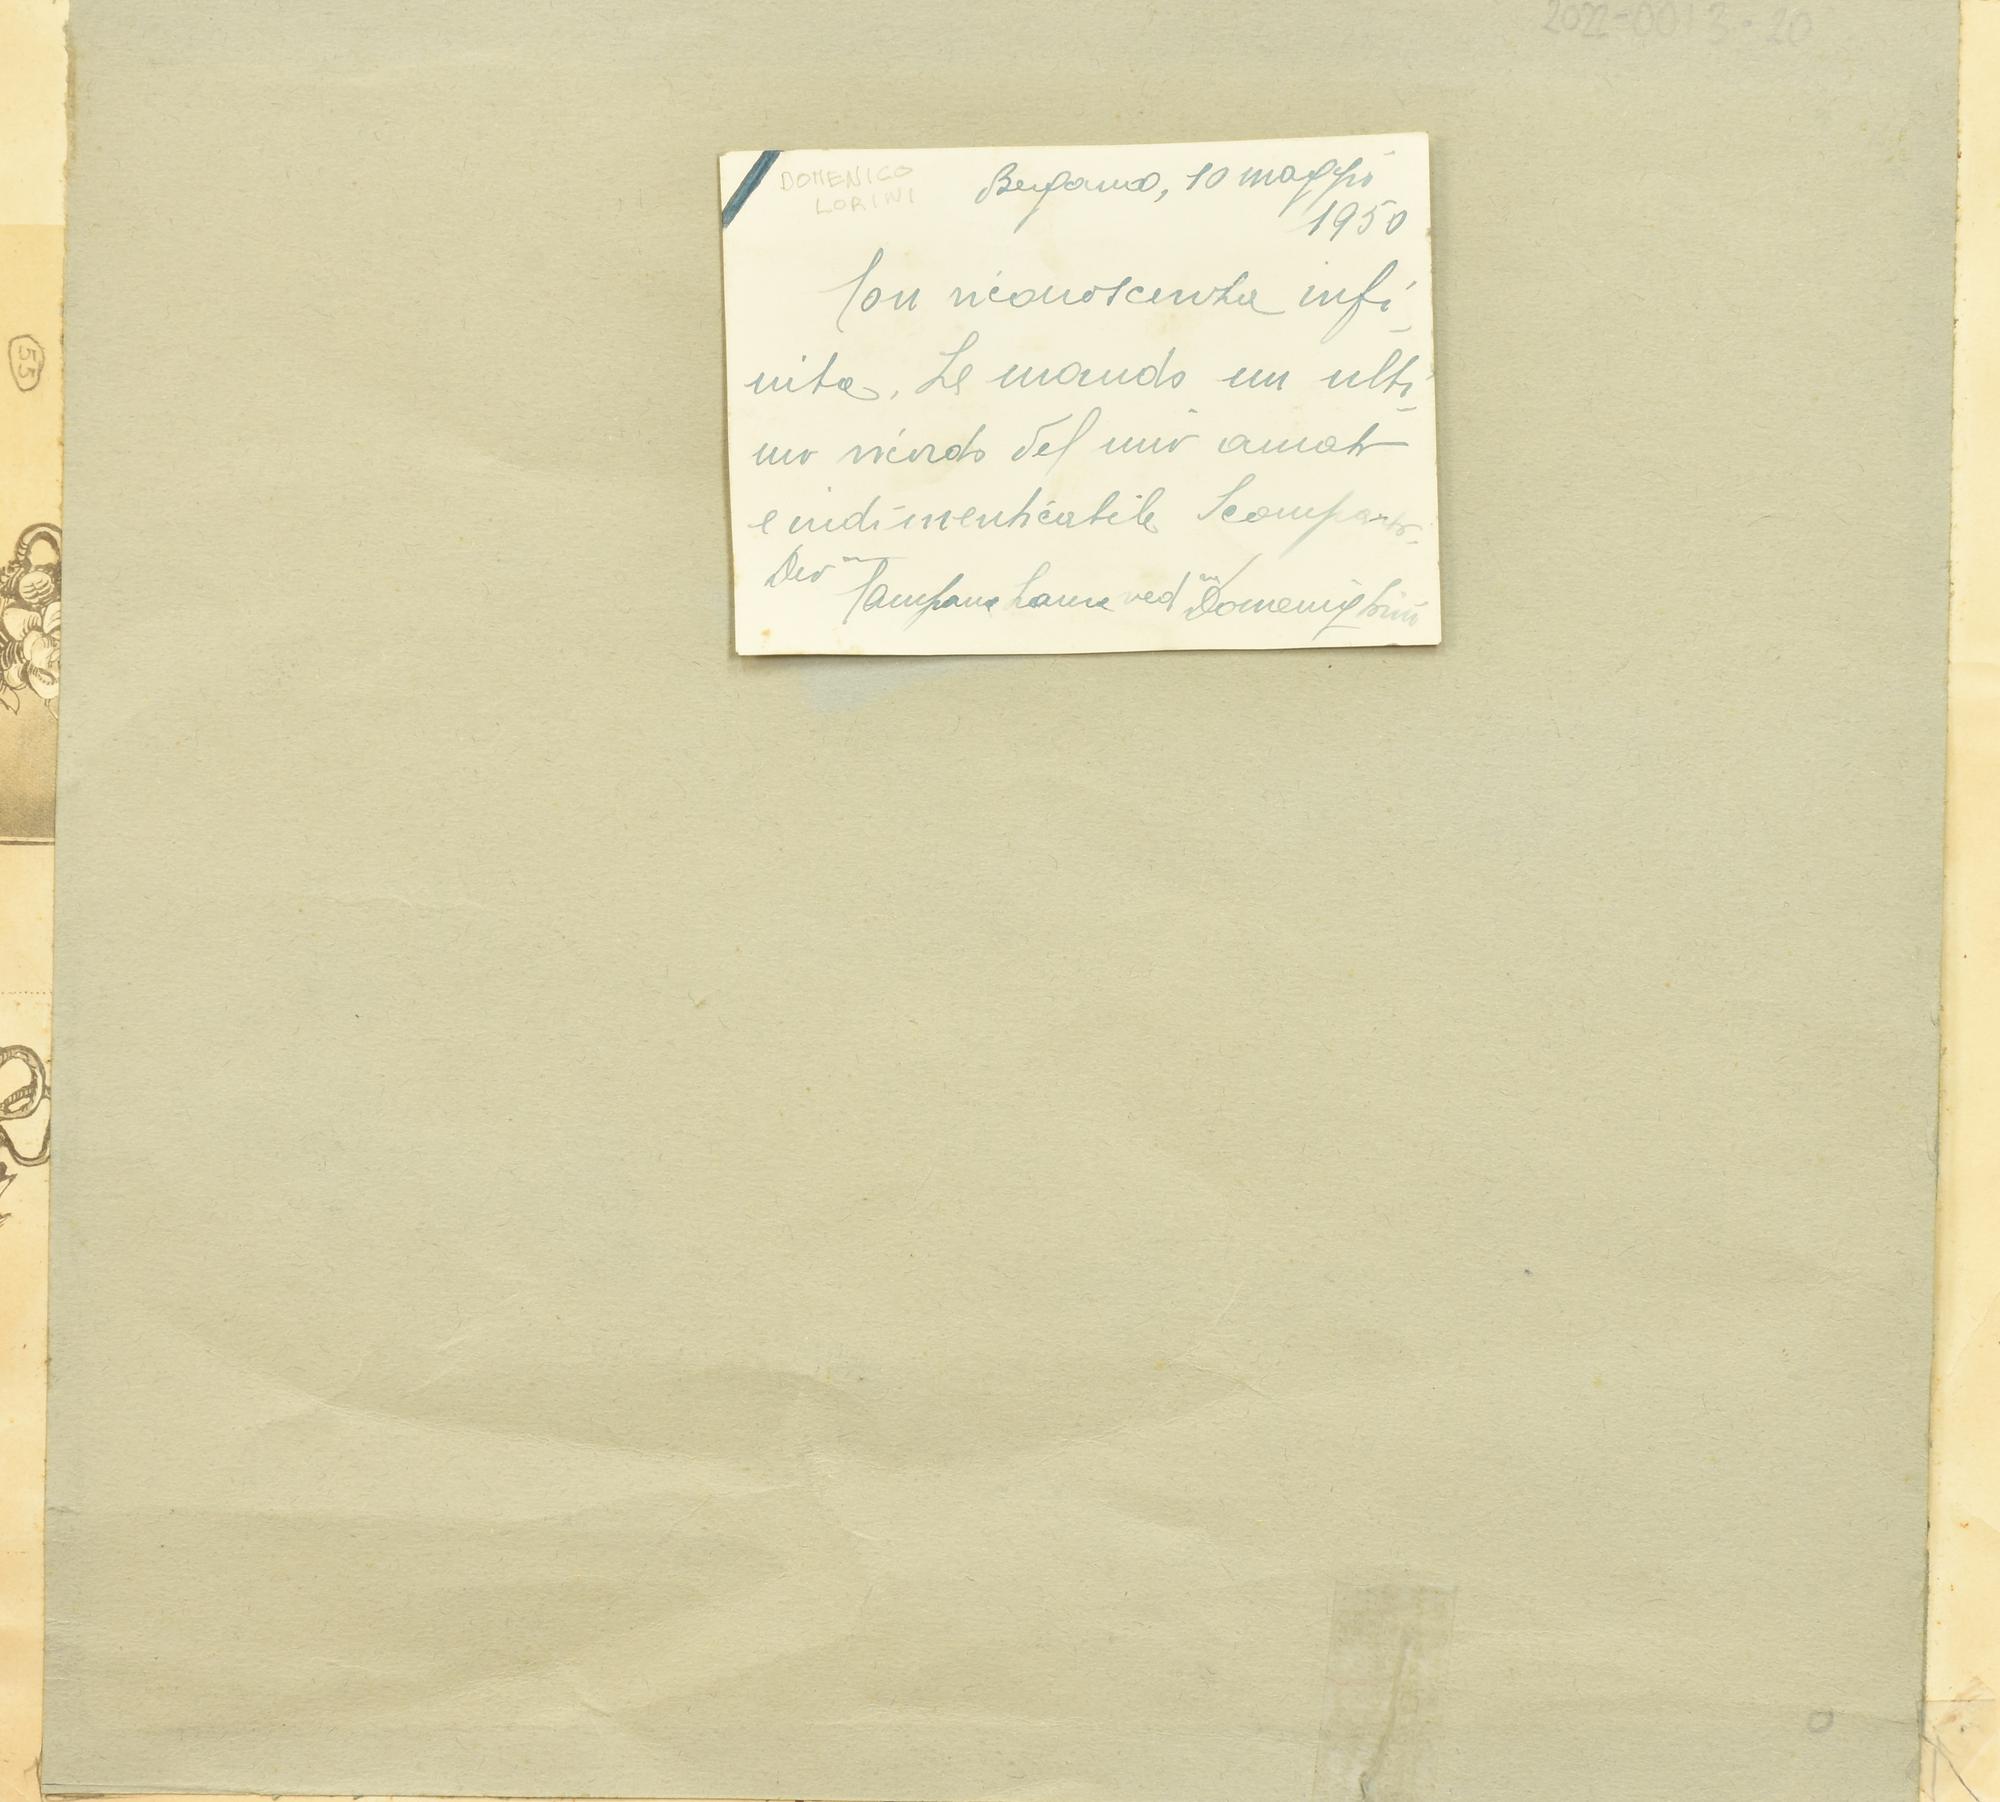 2022-0013-20
DOMENICO
LORINI
Bergamo, 10 maggio
1950
Con riconoscenza infi-
nita, Le mando un ulti-
mo ricordo del mio amato
e indimenticabile Scomparso.
Dev ma Campana Laura ved
55